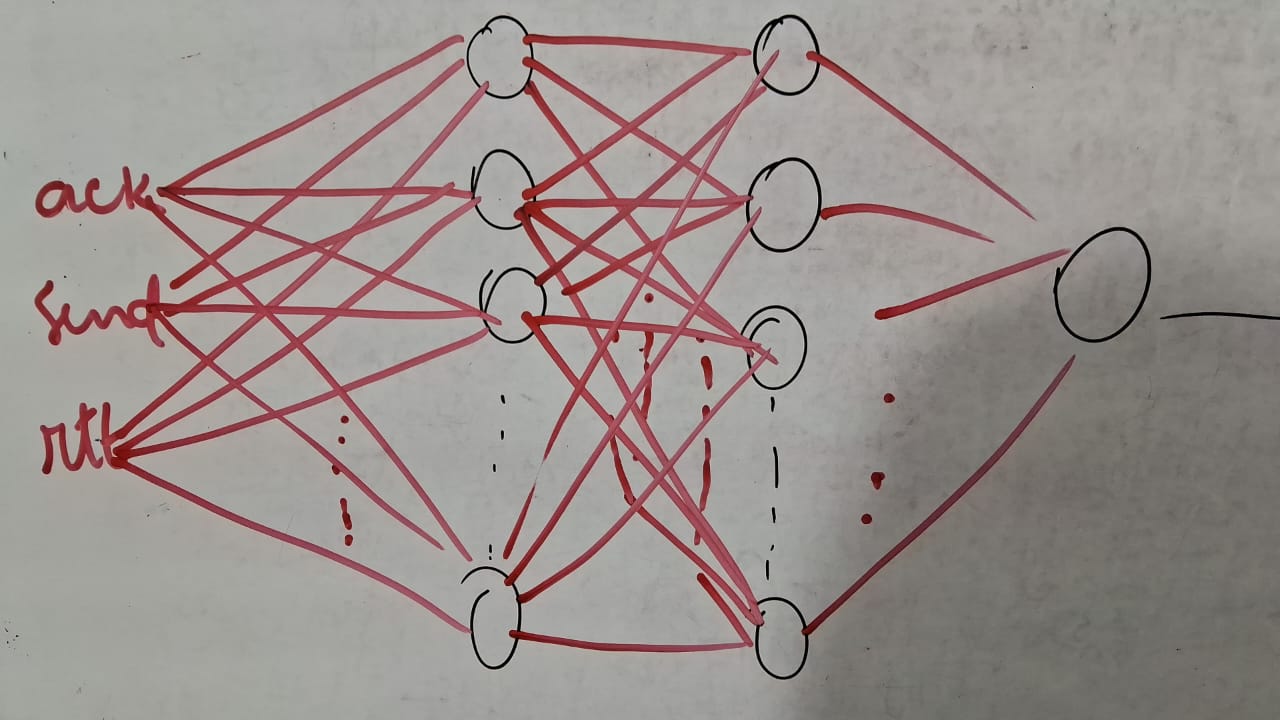 ack
send
rtt